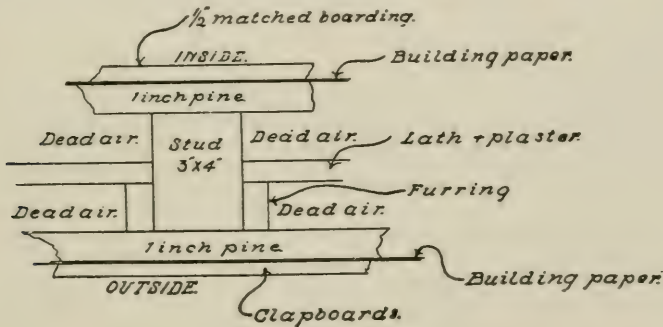 ½" matched boarding.
INSIDE.
Building paper.
1 inch pine
Dead air.
Stud
3"X4"
Dead air.
Lath + plaster.
Furring
Dead air.
Dead air.
1 inch pine
Building paper.
OUTSIDE.
Clapboards.